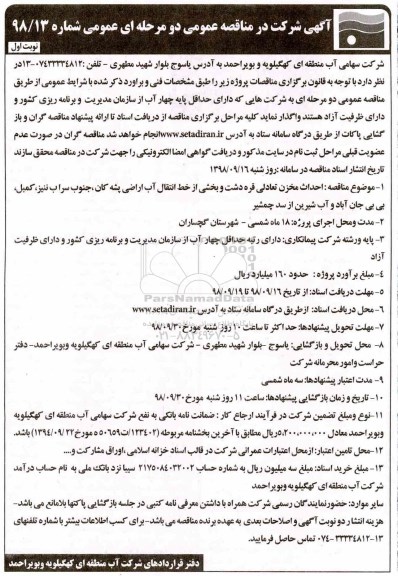 آگهی شرکت در مناقصه عمومی دو مرحله ای عمومی شماره ۹۸/۱۳
نوبت اول
شرکت سهامی آب منطقه ای کهگیلویه و بویراحمد به آدرس یاسوج بلوار شهید مطهری - تلفن :۰۷۴۳۳۳۴۸۱۲-۱۳در
نظر دارد با توجه به قانون برگزاری مناقصات پروژه زیر را طبق مشخصات فنی و برآورد ذکر شده با شرایط عمومی از طریق
مناقصه عمومی دو مرحله ای به شرکت هایی که دارای حداقل پایه چهار آب از سازمان مدیریت و برنامه ریزی کشور و
دارای ظرفیت آزاد هستند واگذار نماید کلیه مراحل برگزاری مناقصه از دریافت اسناد تا ارائه پیشنهاد مناقصه گران و باز
گشایی پاکات از طریق درگاه سامانه ستاد به آدرس www.setadiran.irانجام خواهد شد مناقصه گران در صورت عدم
عضویت قبلی مراحل ثبت نام در سایت مذکور و دریافت گواهی امضا الکترونیکی را جهت شرکت در مناقصه محقق سازند
تاریخ انتشار اسناد مناقصه در سامانه :روز شنبه ۱۳۹۸/۰۹/۱۶
۱- موضوع مناقصه : احداث مخزن تعادلی قره دشت و بخشی از خط انتقال آب اراضی پشه کان ،جنوب سراب ننیز،کمبل،
بی بی جان آباد و آب شیرین از سد چمشیر
۲- مدت ومحل اجرای پروژه: ۱۸ ماه شمسی - شهرستان گچساران
۳- پایه ورشته شرکت پیمانکاری: دارای رتبه حداقل چهار آب از سازمان مدیریت و برنامه ریزی کشور و دارای ظرفیت
آزاد
۴- مبلغ برآورد پروژه : حدود ۱۶۰ میلیارد ریال
۵- مهلت دریافت اسناد: از تاریخ ۹۸/۰۹/۱۶ تا ۹۸/۰۹/۱۹
۶- محل دریافت اسناد: ازطریق درگاه سامانه ستاد به آدرس www.setadiran.ir
۷- مهلت تحویل پیشنهادها: حداکثر تا ساعت ۱۰ روز شنبه مورخ ۹۸/۰۹/۳۰
۸- محل تحویل و بازگشایی: یاسوج -بلوار شهید مطهری - شرکت سهامی آب منطقه ای کهگیلویه وبویراحمد- دفتر
حراست وامور محرمانه شرکت
۹- مدت اعتبار پیشنهادها: سه ماه شمسی
۱۰- تاریخ و زمان بازگشایی پیشنهادها: ساعت ۱۱ روز شنبه مورخ ۹۸/۰۹/۳۰
۱۱- نوع ومبلغ تضمین شرکت در فرآیند ارجاع کار : ضمانت نامه بانکی به نفع شرکت سهامی آب منطقه ای کهگیلویه
وبویراحمد معادل ۵,۲۰۰,۰۰۰,۰۰۰ریال مطابق با آخرین بخشنامه مربوطه (۱۲۳۴۰۲/ت۵۰۶۵۹ ه مورخ۱۳۹۴/۰۹/۲۲) باشد.
۱۲- محل تامین اعتبار: ازمحل اعتبارات عمرانی شرکت در قالب اسناد خزانه اسلامی ،اوراق مشارکت و....
۱۳- مبلغ خرید اسناد: مبلغ سه میلیون ریال به شماره حساب ۲۱۷۵۰۸۴۰۳۲۰۰۲ سیبا نزد بانک ملی به نام حساب درآمد
شرکت آب منطقه ای کهگیلویه وبویراحمد
سایر موارد: حضورنمایندگان رسمی شرکت همراه با داشتن معرفی نامه کتبی در جلسه بازگشایی پاکتها بلامانع می باشد-
هزینه انتشار دو نوبت آگهی و اصلاحات بعدی به عهده برنده مناقصه می باشد- برای کسب اطلاعات بیشتر با شماره تلفنهای
۰۷۴-۳۳۳۳۴۸۱۲-۱۳ تماس حاصل فرمایید.
دفتر قراردادهای شرکت آب منطقه ای کهگیلویه وبویراحمد